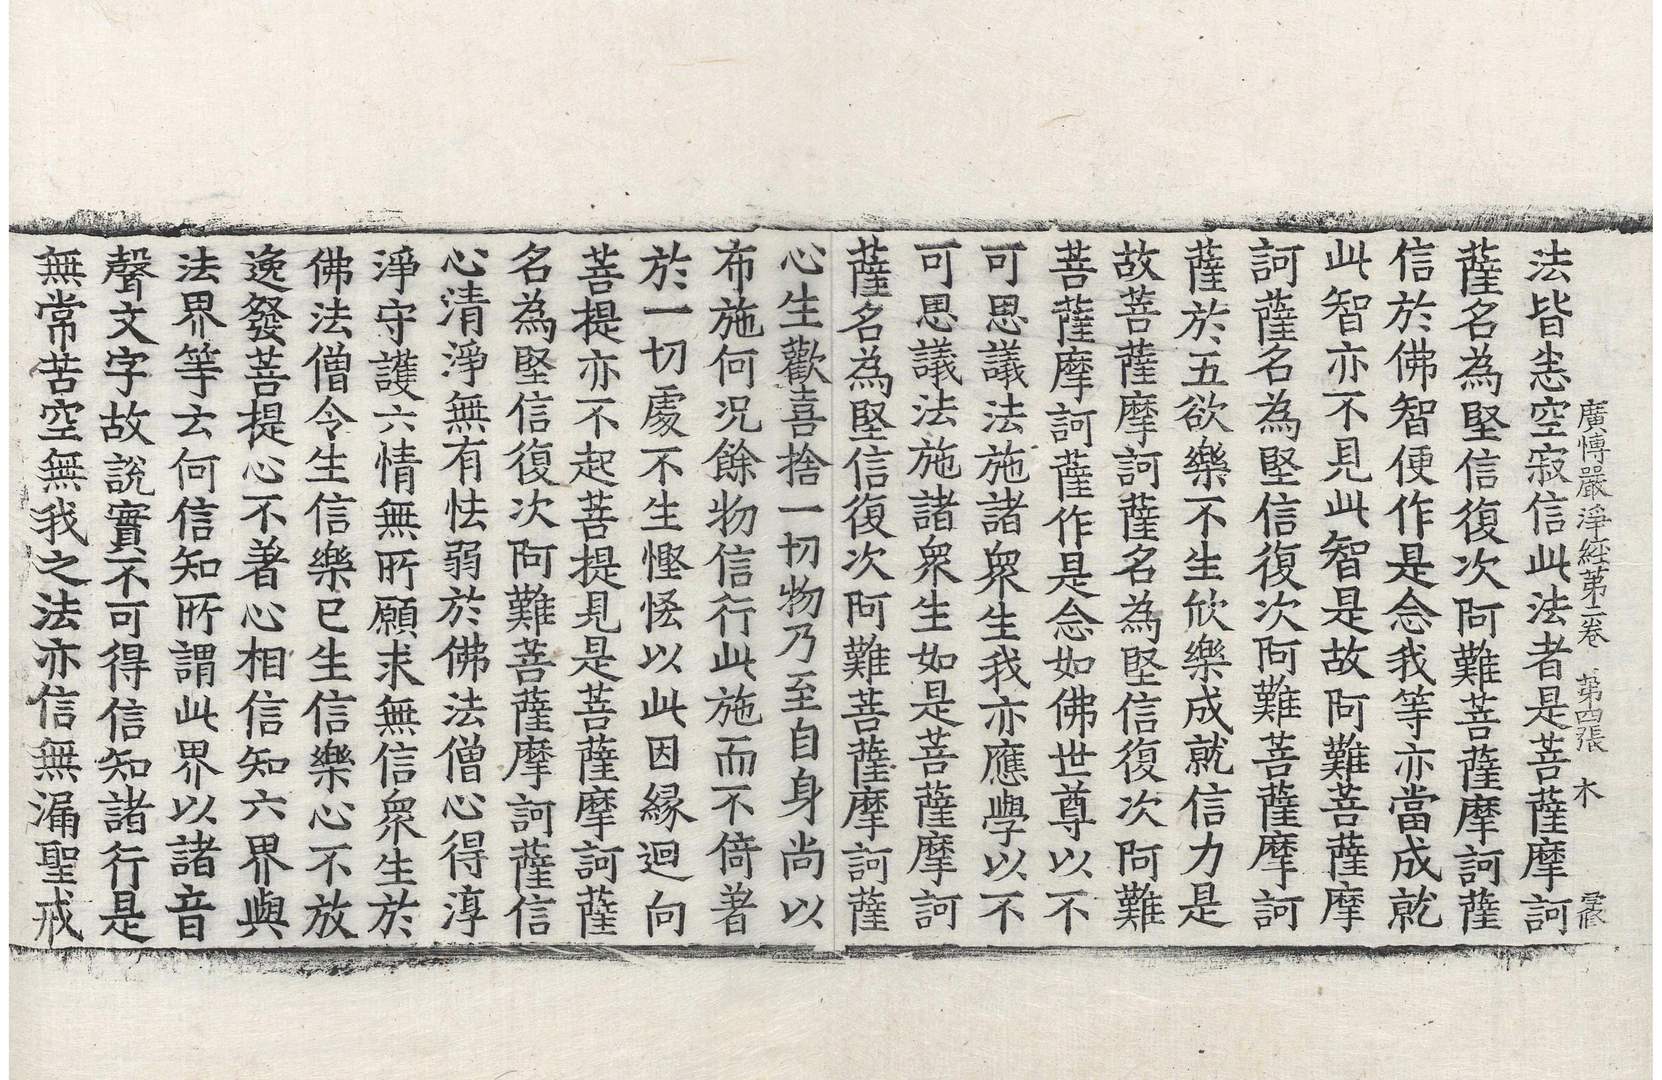 廣博嚴淨經第二卷 第四張 木
法皆悉空寂信此法者是菩薩摩訶
薩名為堅信復次阿難菩薩摩訶薩
信於佛智便作是念我等亦當成就
此智亦不見此智是故阿難菩薩摩
訶薩名為堅信復次阿難菩薩摩訶
薩於五欲樂不生欣樂成就信力是
故菩薩摩訶薩名為堅信復次阿難
菩薩摩訶薩作是念如佛世尊以不
可思議法施諸衆生我亦應學以不
可思議法施諸衆生如是菩薩摩訶
薩名為堅信復次阿難菩薩摩訶薩
心生歡喜捨一切物乃至自身尚以
布施何況餘物信行此施而不倚著
於一切處不生慳悋以此因縁迴向
菩提亦不起菩提見是菩薩摩訶薩
名為堅信復次阿難菩薩摩訶薩信
心清淨無有怯弱於佛法僧心得淳
淨守護六情無所願求無信衆生於
佛法僧令生信樂已生信樂心不放
逸發菩提心不著心相信知六界與
法界等云何信知所謂此界以諸音
聲文字故說實不可得信知諸行是
無常苦空無我之法亦信無漏聖戒